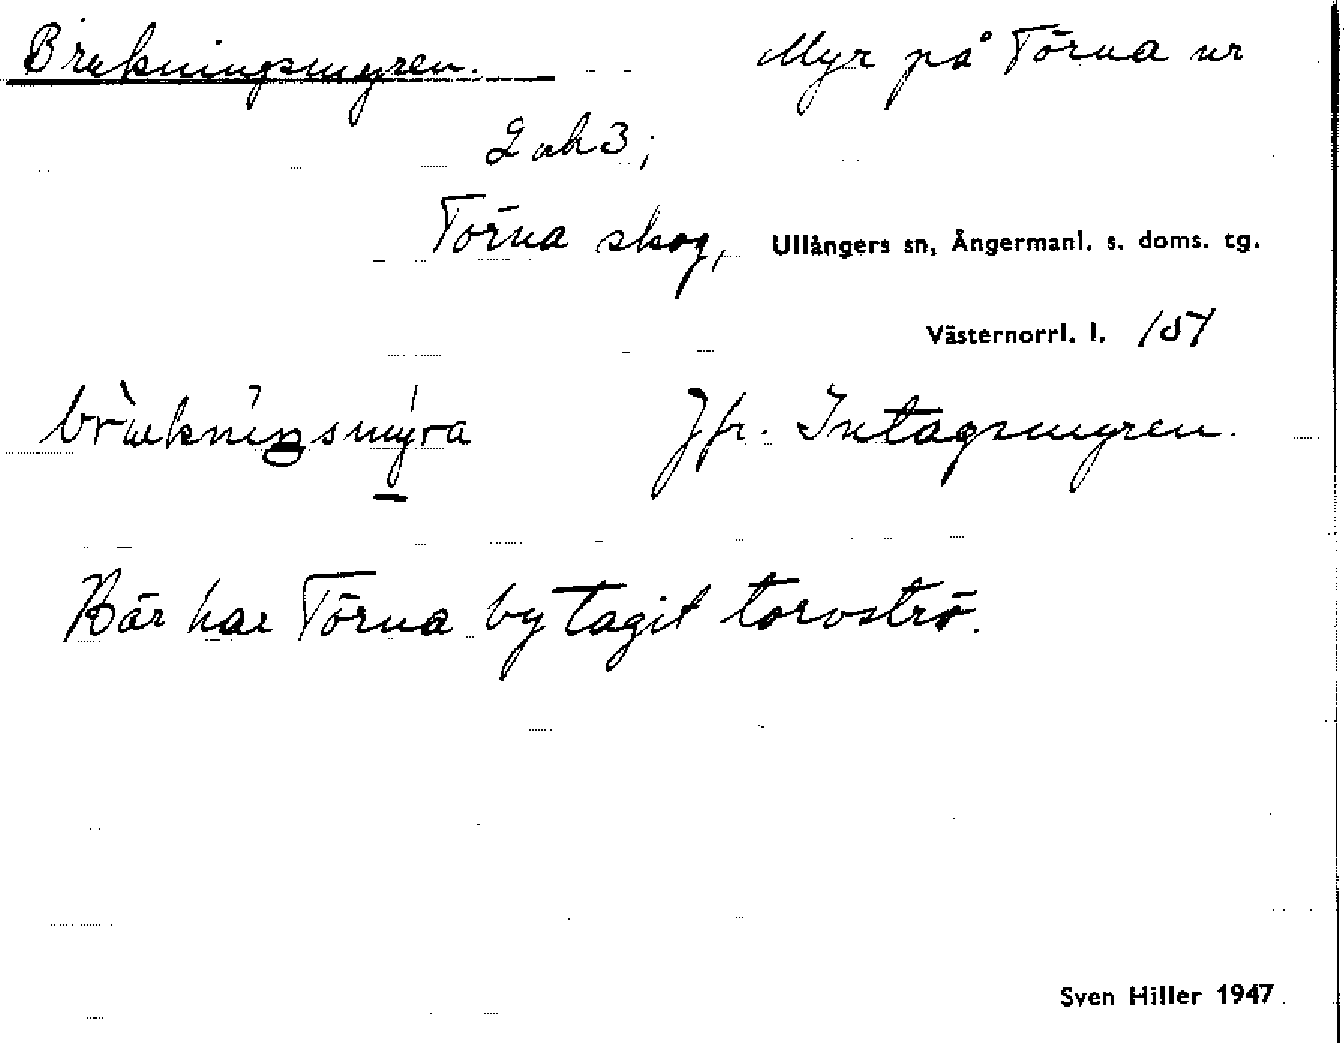 Brukningsmyren. Myr på Törna nr
2 och 3;
Törna skog, Ullångers sn, Ångermanl. s. doms. tg.
Västernorrl. l.
Jfr. Intagsmyren.
Här har Törna by tagit torvströ.
Sven Hiller 1947